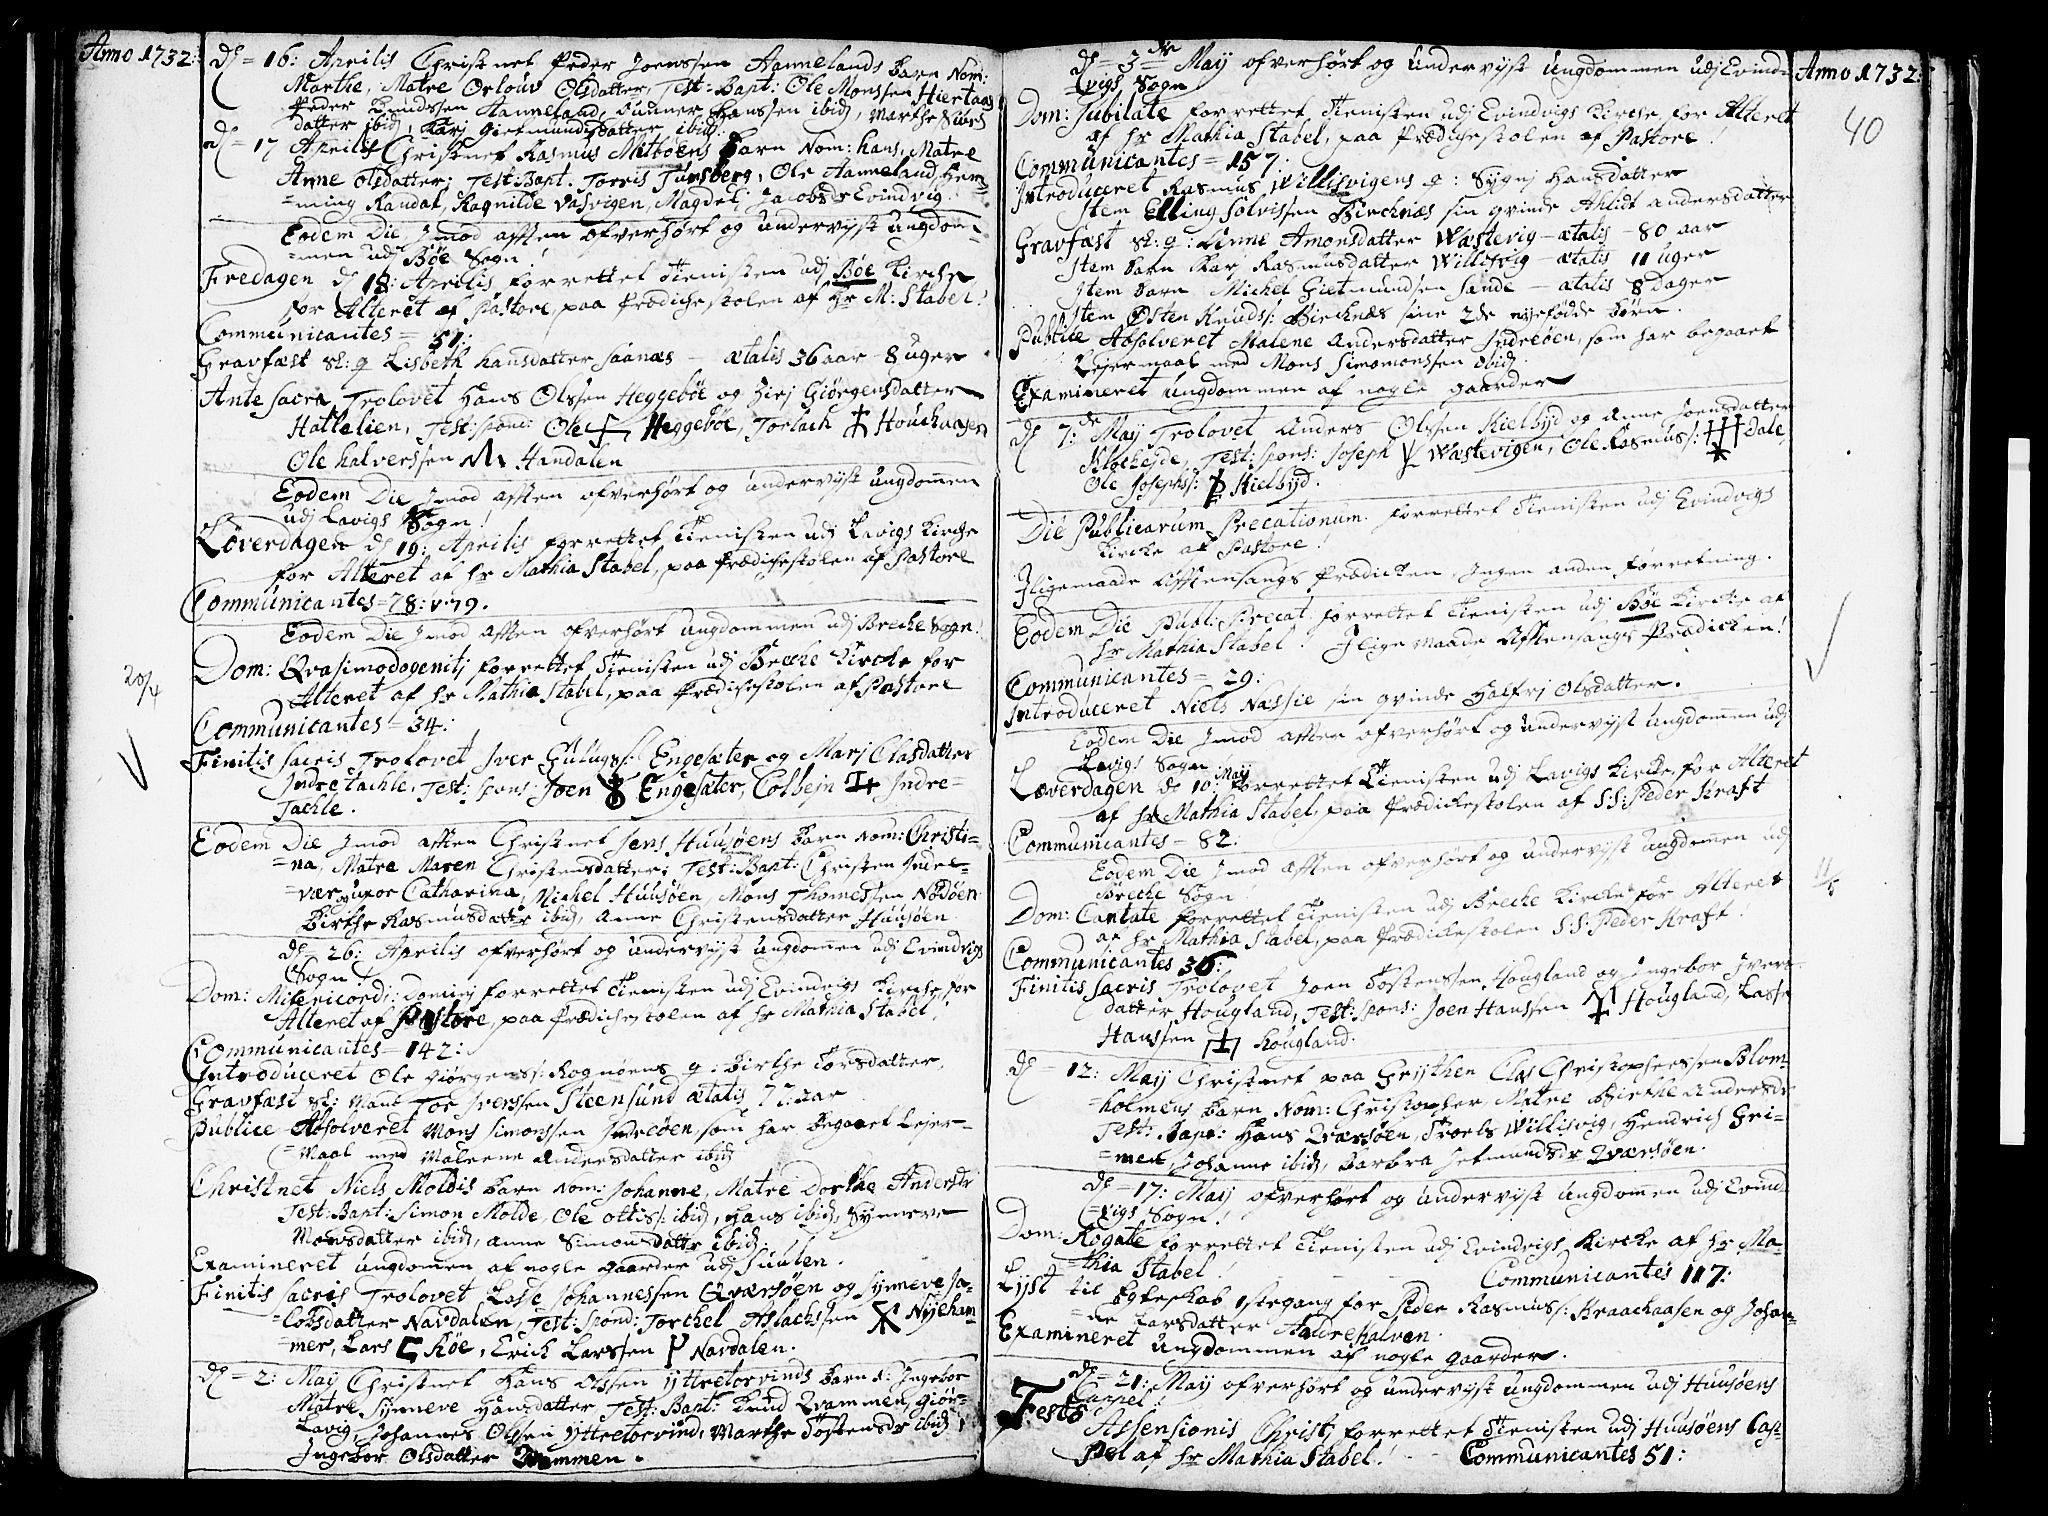 Anno 1732:
d = 16: Aprilis Christnet Peder Joenssen Hannelands barn Nom:
Marthe, Matre Orlouv Olsdatter, Test: Bapt: Ole Monssen Hiertaas
Peder Knudssen Hanneland, Gunner Hanssen ibid, Marthe Siurs
datter ibid, Karj Gietmundsdatter ibid.
d = 17 Aprilis Christnet Rasmus Mittøens barn Nom: hans, Matre
Anne Olsdatter; Test: Bapt. Torris Tunsberg, Ole Hanneland, Hem¬
=ming Randal, Ragnilde Vasvigen, Magdelj Jacobsdr Evindvig.
Eodem Die Jmod afften ofverhørt og undervijst ungdom¬
=men udj Bøe Sogn!
Fredagen d 18: Aprilis forrettet Tienisten udj Bøe Kircke
for Alteret af Pastore, paa Prædickestolen af Hr M: Stabel!
Communicantes = 51:
Gravfæst sl: q Lisbeth hansdatter Saanæs — ætatis 36 aar - 8 uger
Ante Sacra Trolovet Hans Olssen Heggebøe og Sirj Giørgensdatter
Hattelien, Test: spons: Ole Heggebøe, Torlach Houchaasen
Ole halverssen Handalen
Eodem Die Jmod afften ofverhørt og undervijst ungdommen
udj Lavigs Sogn!
Løverdagen d 19: Aprilis forrettet Tienisten udj Lavigs Kircke
for Alteret af Hr Mathia Stabel, paa Prædickestolen af Pastore
Communicantes = 78: v. 79.
Eodem Die Jmod afften ofverhørt ungdommen udj Brecke Sogn!
Dom: Qvasimodogenitj forrettet Tienisten udj Brecke Kircke for
Alteret af Hr Mathia Stabel, paa Prædickestolen af Pastore
20/4
Communicantes = 34:
Finitis Sacris Trolovet Iver Gulugs: Engesæter og Marj Clasdatter
Jndretachle, Test: Spons: Joen Engesæter, Colbejn Jndre=
Tachle.
Eodem Die Jmod afften Christnet Jens Huusøens barn Nom: Christi¬
=na, Matre Maren Christensdatter; Test: Bapt: Christen Indre¬
=vær og uxor Catharina, Michel Huusøen, Mons Thomessen Nodøen
Birthe Rasmusdatter ibid, Anne Christensdatter Huusøen
d = 26: Aprilis ofverhørt og undervijst ungdommen udj Evindvigs
Sogn
Dom: Misericord: Dominj forrettet Tienisten udj Evindvigs Kircke, for
Alteret af Pastore, paa Prædickestolen af Hr Mathia Stabel!
Communicantes = 142:
Introduceret Ole Giørgens: Rognøens q: Birthe Torsdatter,
Gravfæst sl: Mand Tor Iverssen Steensund ætatis 77: aar
Publice Absolveret Mons Simonssen Indreøen, som har begaaet Lejer¬
=maal med Malene Andersdatter ibid
Christnet Niels Moldis barn Nom: Johanne, Matre Dorthe Andersdr
Test: Bapt: Simon Molde, Ole Ottis: ibid, Hans ibid, Synneve
Monsdatter ibid, Anne Simonsdatter ibid.
Examineret ungdommen af nogle gaarder udj Suulen.
Finitis Sacris Trolovet Lasse Johannessen Qværsøen og Synneve Ja¬
=cobsdatter Nardalen, Test: Spond: Torchel Aslachssen Nyeham¬
mer, Lars Røe, Erick Larssen Nardalen.
d = 2: Maij Christnet Hans Olssen Yttretorvinds barn d: Ingebor
Matre Synneve Hansdatter, Test: Bapt: Knud Qvammen, Giør¬
Lavig, Johannes Olssen Yttretorvind, Marthe Tostensdr ibid,
Ingebor Olsdatter Qvammen.
Anno 1732:
40
d = 3die Maij ofverhørt og undervijst ungdommen udj Evind¬
vigs Sogn
Dom: Jubilate forrettet Tienisten udj Evindvigs Kircke for Alteret
af Hr Mathia Stabel, paa Prædickestolen af Pastore!
Communicantes = 157:
Introduceret Rasmus Willisvigens q: Sygnj Hansdatter
Item Elling Solvissen Birchnæs sin qvinde Ahlidt Andersdatter
Gravfæst sl: q: Linne Amonsdatter Wæstevig - ætatis - 80 aar
Item barn Karj Rasmusdatter Willisvig - ætatis 11 uger
Item barn Michel Gietmundsen Sande - ætatis 8 dager
Item Østen Knuds: Birchnæs sine 2de nyefødde børn.
Publice Absolveret Malene Andersdatter Indreøen, som har begaaet
Lejermaal med Mons Simonssen ibid
Examineret ungdommen af nogle gaarder
d 7: de Maij Trolovet Anders Olssen Kielbyd og Anne Joensdatter
Klochejde, Test: Spons: Joseph Wæstevigen, Ole Rasmus: Dale,
Ole Josephs: Kielbyd.
Die Publicarum Precationum forrettet Tienisten udj Evindvigs
Kircke af Pastore!
Iligemaade Afftensangs Prædicken, Ingen anden forretning.
Eodem Die Publ: Precat forrettet Tienisten udj Bøe Kircke af
Hr Mathia Stabel! Iligemaade Afftensangs Prædicken!
Communicantes = 29:
Introduceret Niels Næssie sin qvinde Halfrj Olsdatter.
Eodem Die Jmod afften ofverhørt og undervijst ungdommen udj
Lavigs Sogn
Løverdagen de 10: Maij forrettet Tienisten udj Lavigs Kircke, for Alteret
af Hr Mathia Stabel, paa Prædickestolen af S:S: Peder Kraft
Communicantes = 82.
Eodem Die Jmod afften ofverhørt og undervijst ungdommen udj
Brecke Sogn!
11/5
Dom: Cantate forrettet Tienisten udj Brecke Kircke for Alteret
af Hr Mathia Stabel, paa Prædickestolen S:S: Peder Kraft.
Communicantes 36:
Finitis Sacris Trolovet Joen Tostenssen Hougland og Ingebor Ivers¬
datter Hougland, Test: Spons: Joen Hanssen Hougland, Lasse
Hanssen Hougland.
d = 12: Maij Christnet paa Grythen Clas Christophersen Blom¬
=holmens barn Nom: Christopher, Matre Birthe Andersdr
Test: Bapt: Hans Qværsøen, Troels Willisvig, Hendrich Gri¬
=men, Johanne ibid, Barbra Jetmundsdr Qværsøen.
d = 17: Maij ofverhørt og undervijst ungdommen udj Evind¬
=vigs Sogn!
Dom: Rogate forrettet Tienisten udj Evindvigs Kircke af Hr Ma¬
=thia Stabel! Communicantes 117:
Lyst til Egteskab 1ste gang for Peder Rasmus: Kraachaasen og Johan¬
ne Larsdatter Andrehalven.
Examineret ungdommen af nogle gaarder.
d = 21: Maij ofverhørt og undervijst ungdommen udj Huusøens
Cappel!
Festo Assensionis Christj forrettet Tienisten udj Huusøens Cap¬
pel af Hr Mathia Stabel! Communicantes 51: